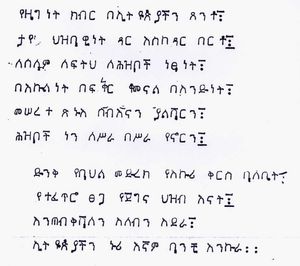 የዜግነት ክብር በኢትዮጵያችን ጸንቶ፤
ታየ ህዝባዊነት ዳር እስከዳር በርቶ፤
ለሰላም ለፍትህ ለሕዝቦች ነፃነት፤
በእኩልነት በፍቅር ቆመናል በአንድነት፤
መሠረተ ጽኑ ሰብእናን ያልሻርን፤
ሕዝቦች ነን ለሥራ በሥራ የኖርን፤
ድንቀ የባህል መድረክ የአኩሪ ቅርስ ባለቤት፤
የተፈጥሮ ፀጋ የጀግና ህዝብ እናት፤
እንጠብቅሻለን አለብን አደራ፤
ኢትዮጵያችን ኑሪ እኛም ባንቺ እንኩራ፡፡